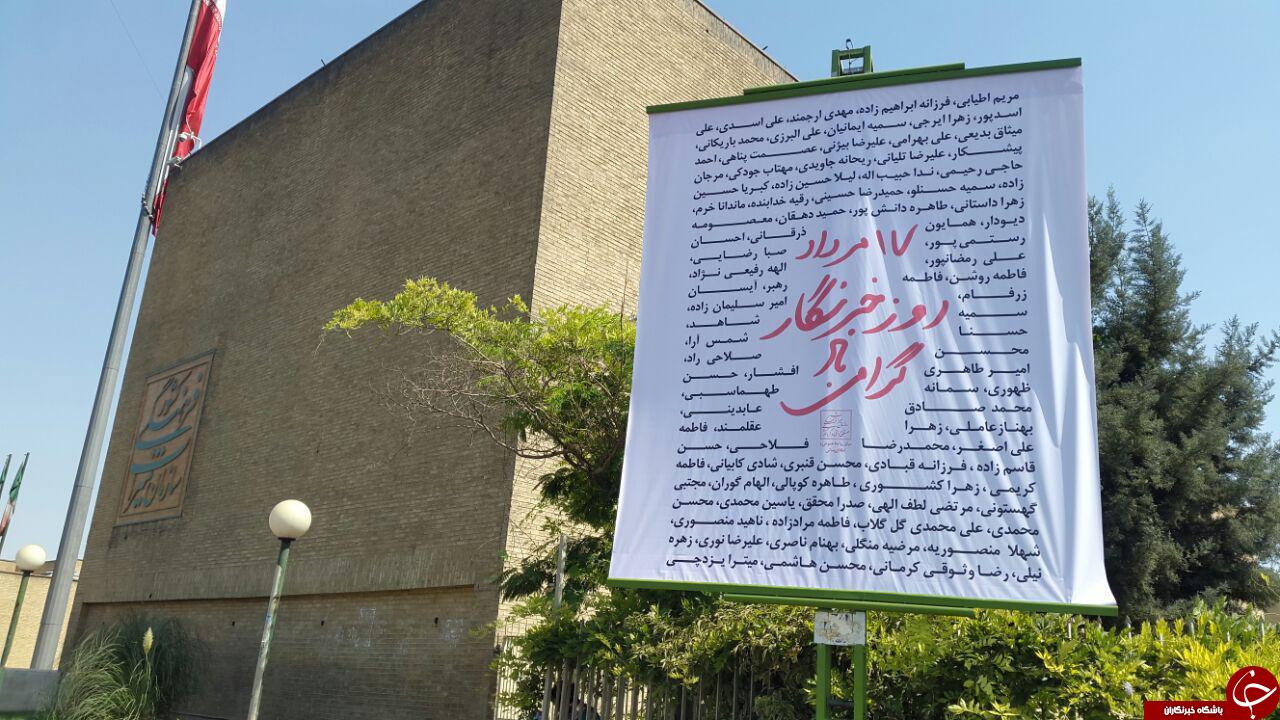 مریم اطیابی، فرزانه ابراهیم زاده، مهدی ارجمند، علی اسدی، علی
اسدپور، زهرا ایرجی، سمیه ایمانیان، علی البرزی، محمد باریکانی،
میثاق بدیعی، علی بهرامی، علیرضا بیژنی، عصمت پناهی، احمد
پیشکار، علیرضا تلیانی، ریحانه جاویدی، مهتاب جودکی، مرجان
حاجی رحیمی، ندا حبیب اله، لیلا حسین زاده، کبریا حسین
زاده، سمیه حسنلو، حمیدرضا حسینی، رقیه خدابنده، ماندانا خرم،
زهرا داستانی، طاهره دانش پور، حمید دهقان، معصومه
دیودار، همایون ذرقانی، احسان
رستمی پور، صبا رضایی،
علی رمضانپور، الهه رفیعی نژاد،
فاطمه روشن، فاطمه رهبر، آیسان
زرفام، امیر سلیمان زاده،
سمیه شاهد،
حسنا شمس آرا،
محسن صلاحی راد،
امیر طاهری افشار، حسن
ظهوری، سمانه طهماسبی،
محمد صادق عابدینی،
بهناز عاملی، زهرا عقلمند، فاطمه
علی اصغر، محمدرضا فلاحی، حسن
قاسم زاده، فرزانه قبادی، محسن قنبری، شادی کابیانی، فاطمه
کریمی، زهرا کشوری، طاهره کوپالی، الهام گوران، مجتبی
گهستونی، مرتضی لطف الهی، صدرا محقق، یاسین محمدی، محسن
محمدی، علی محمدی گل گلاب، فاطمه مرادزاده، ناهید منصوری،
شهلا منصوریه، مرضیه منگلی، بهنام ناصری، علیرضا نوری، زهره
نیلی، رضا وثوقی کرمانی، محسن هاشمی، میترا یزدچی
۱۷ مرداد
روز خبرنگار
گرامی باد
باشگاه خبرنگاران